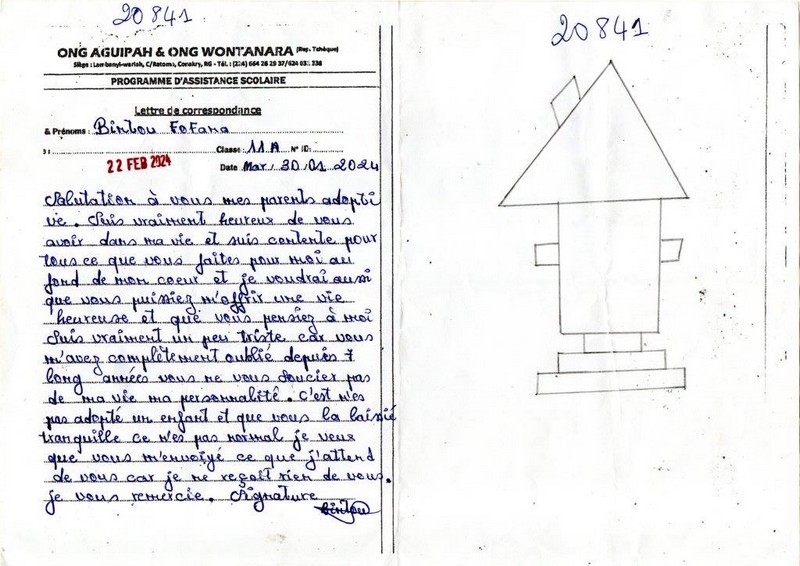 20841
ONG AGUIPAH & ONG WONTANARA (Rep. Tchèque)
Siège : Lambanyi-wariah, C/Ratoma, Conakry, RG - Tél. : (224) 664 26 29 37/624 031 338
PROGRAMME D'ASSISTANCE SCOLAIRE
Lettre de correspondance
& Prénoms : Bintou Fofana
Classe : 11 A N° ID:
22 FEB 2024
Date Mar, 30/01 2024
Salutation à vous mes parents adopti
ve. Suis vraiment heureux de vous
avoir dans ma vie et suis contente pour
tous ce que vous faites pour moi au
fond de mon coeur et je voudrai aussi
que vous puissiez m'offrir une vie
heureuse et que vous pensiez à moi
Suis vraiment un peu triste car vous
m'avez complètement oublié depuis 7
long années vous ne vous soucier pas
de ma vie ma personnalité. C'est n'es
pas adopté un enfant et que vous la laissié
tranquille ce n'es pas normal je veux
que vous m'envoiyé ce que j'attend
de vous car je ne reçoit rien de vous.
je vous remercie. Signature
Bintou
20841